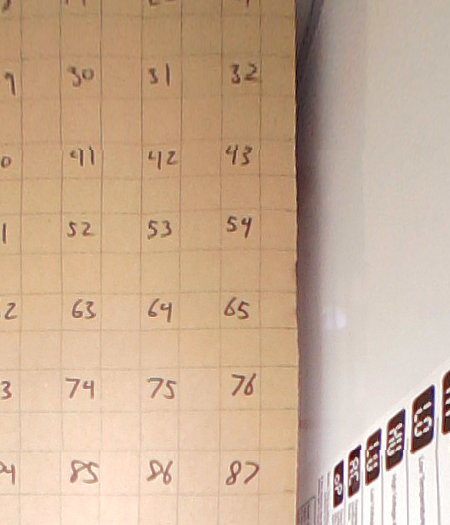 9 30 31 32
0 41 42 43
1 52 53 54
2 63 64 65
3 74 75 76
4 85 86 87
LO
HU
LU
AC
OP